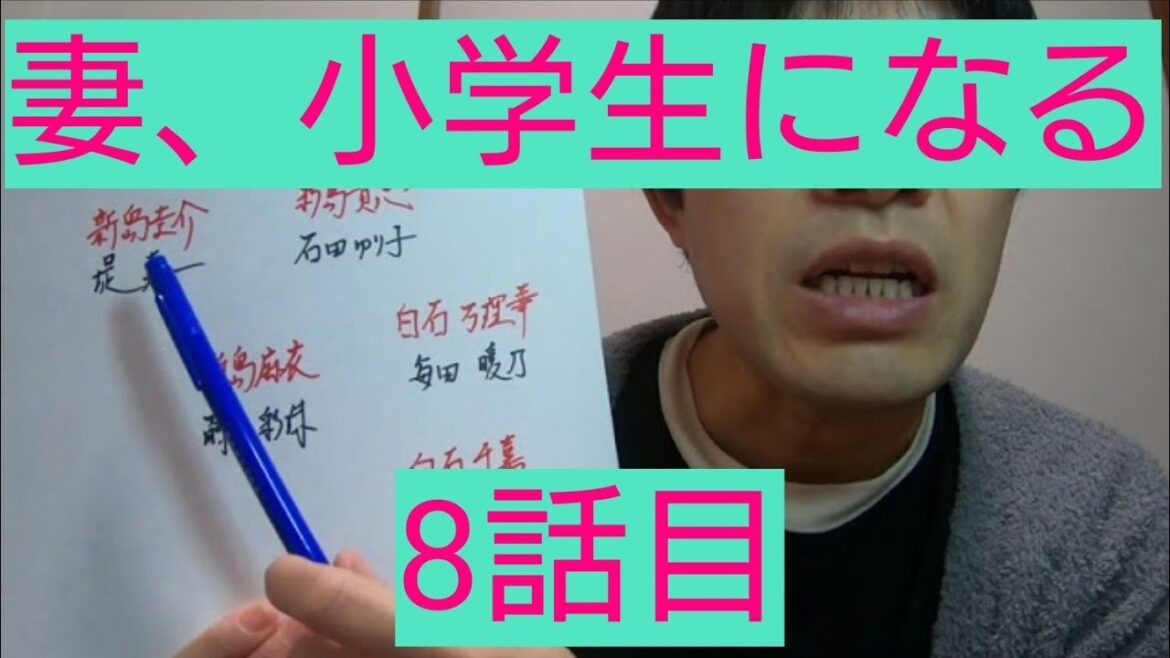 妻、小学生になる
新島圭介
石田ゆり子
白石万理華
毎田暖乃
島麻衣
白石千嘉
8話目